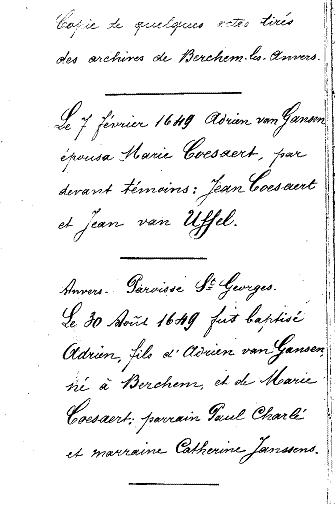 Copie de quelques actes tirés
des archives de Berchem-lez-Anvers.
Le 7 février 1649 Adrien van Gansen
épousa Marie Coesaert, par
devant témoins: Jean Coesaert
et Jean van Uffel.
Anvers - Paroisse St Georges.
Le 30 Août 1649 fut baptisé
Adrien, fils d'Adrien van Gansen,
né à Berchem, et de Marie
Coesaert; parrain Paul Charlé
et marraine Catherine Janssens.